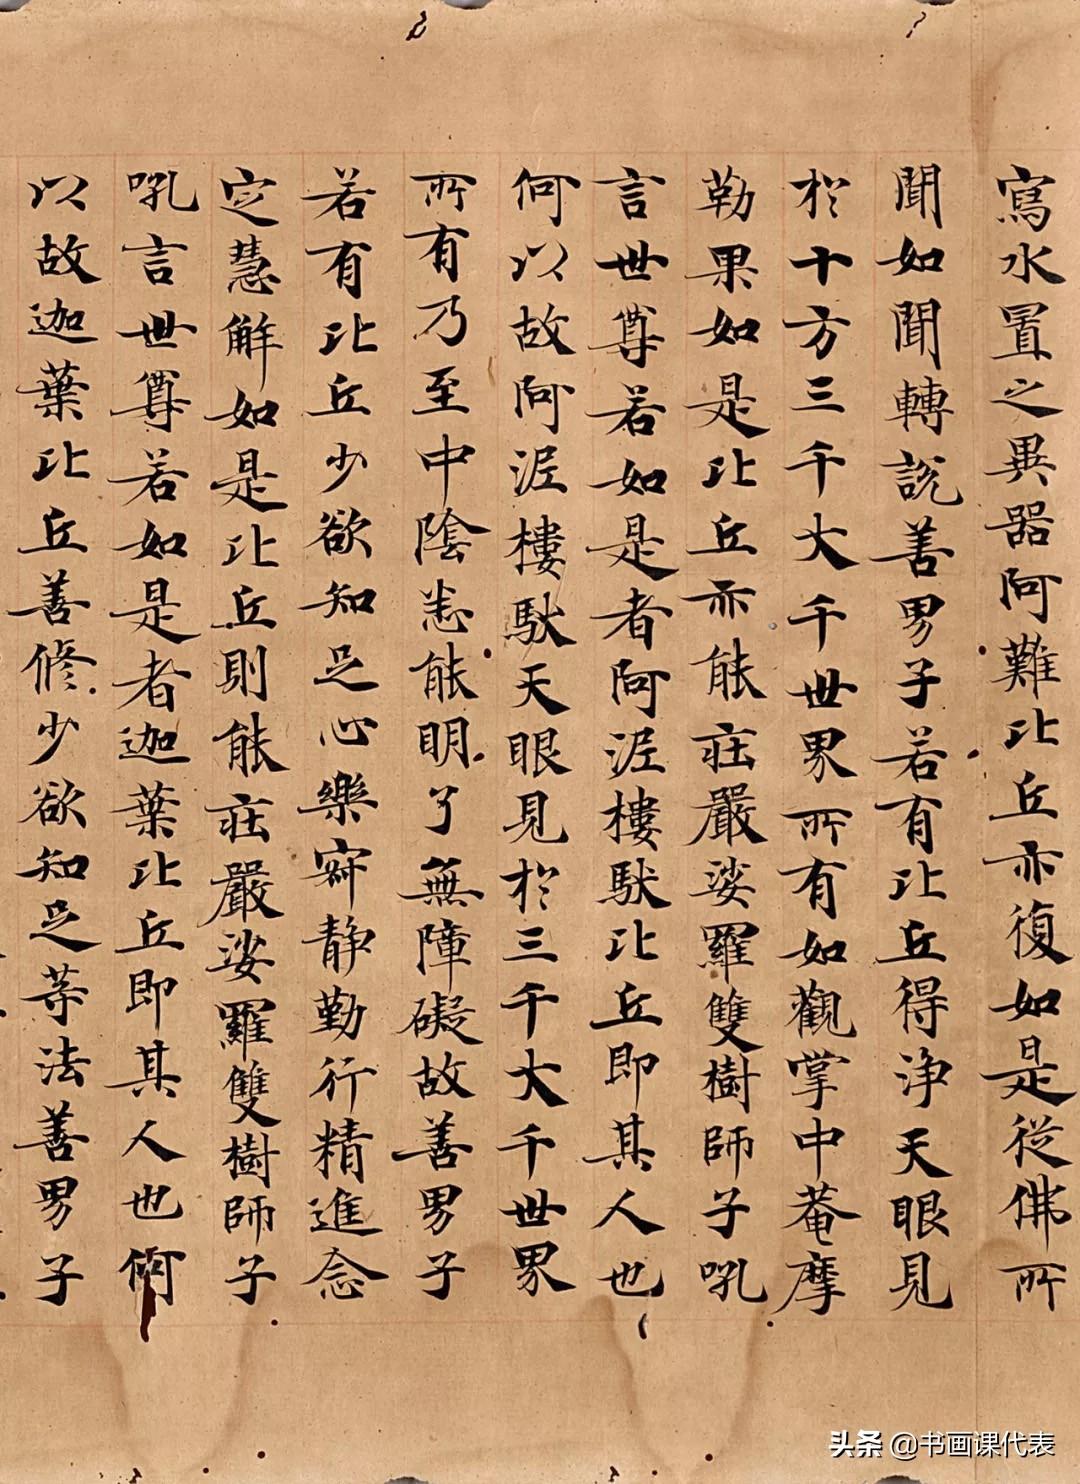 寫水置之異器阿難比丘亦復如是從佛所
聞如聞轉說善男子若有比丘得淨天眼見
於十方三千大千世界所有如觀掌中菴摩
勒果如是比丘亦能莊嚴娑羅雙樹師子吼
言世尊若如是者阿泥樓馱比丘即其人也
何以故阿泥樓馱天眼見於三千大千世界
所有乃至中陰悉能明了無障礙故善男子
若有比丘少欲知足心樂寂静勤行精進念
定慧解如是比丘則能莊嚴娑羅雙樹師子
吼言世尊若如是者迦葉比丘即其人也何
以故迦葉比丘善修少欲知足等法善男子
头条 @书画课代表